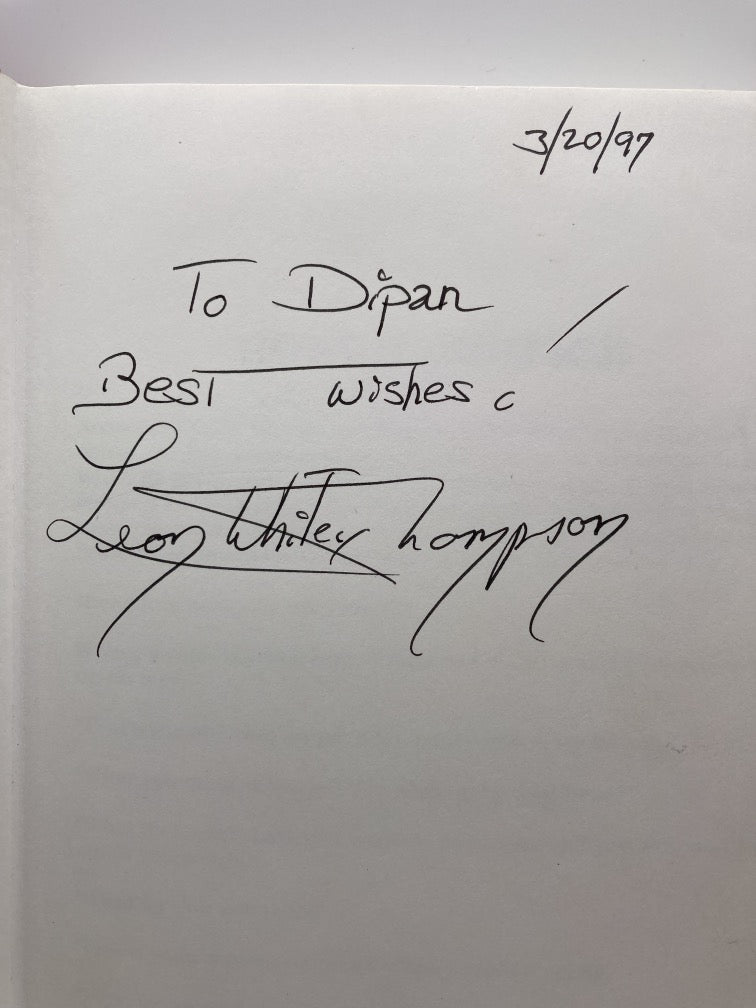 3/20/97
To Dipan
Best wishes!
Leon Whitey Thompson